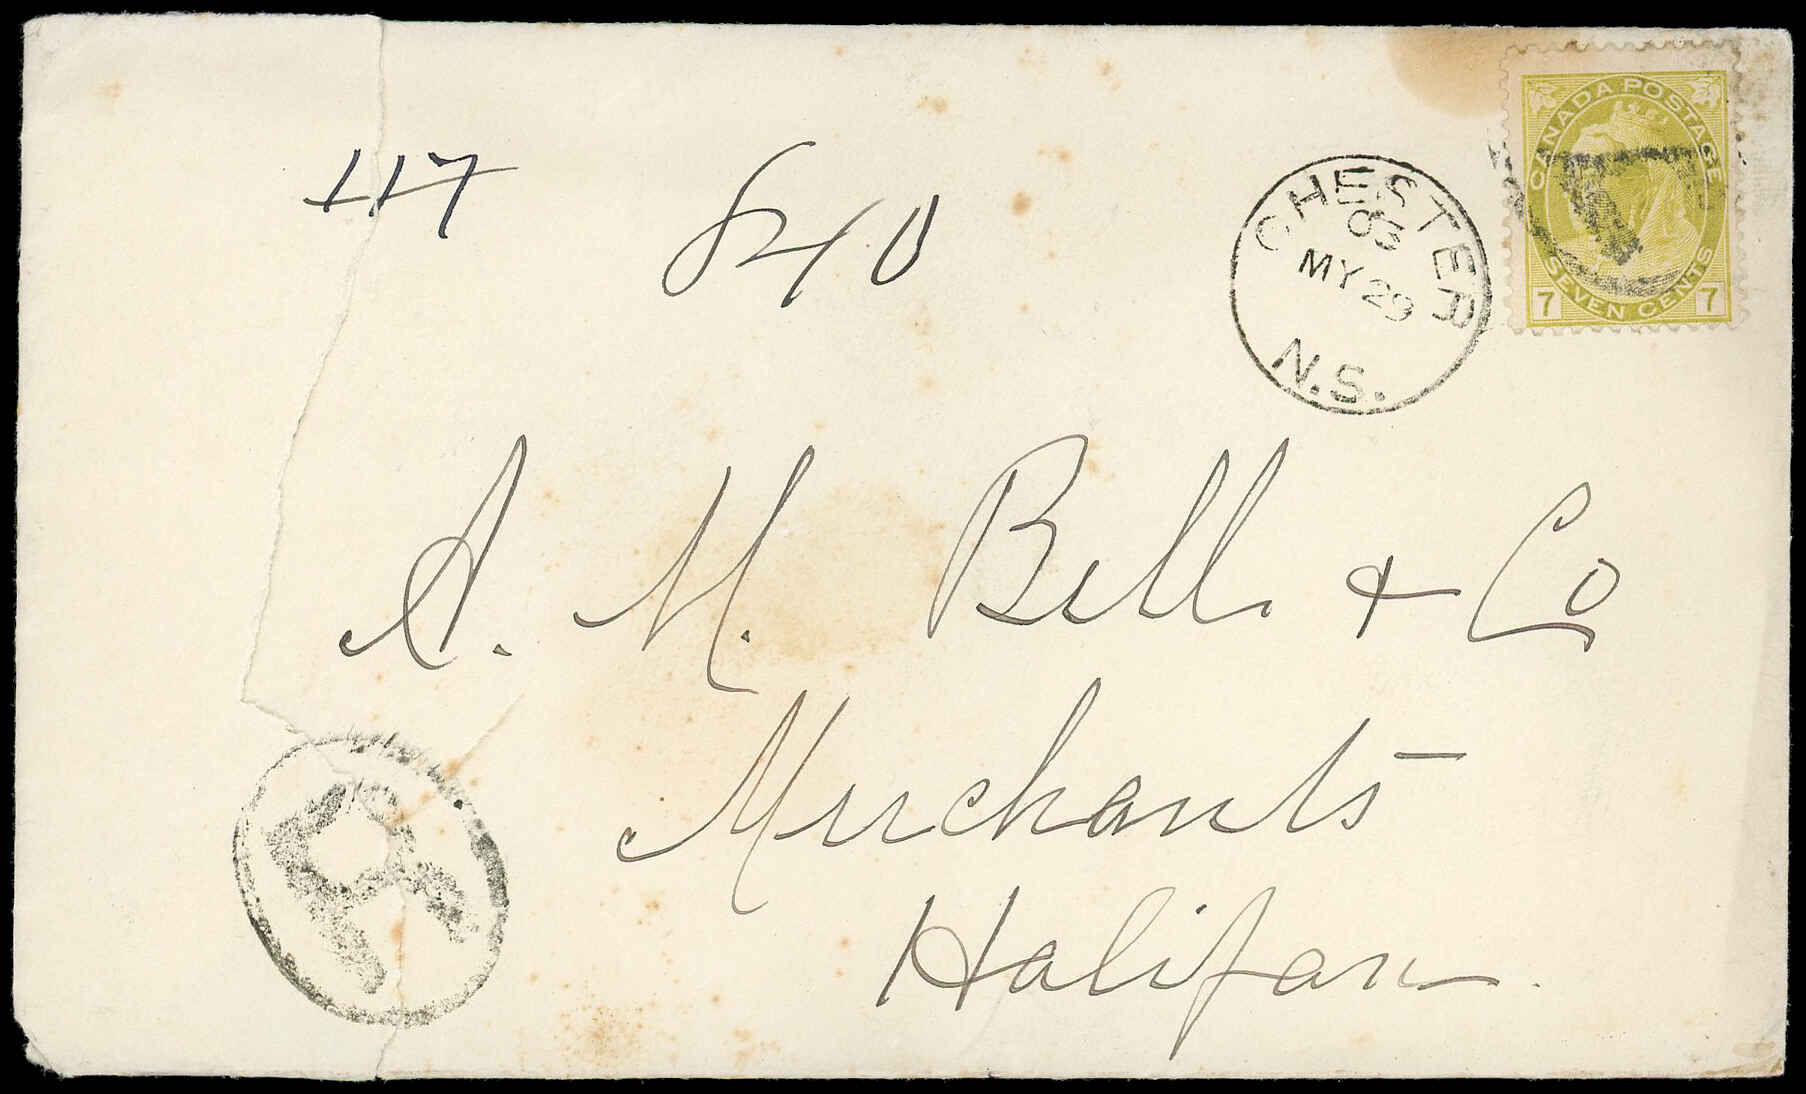 CANADA POSTAGE
SEVEN CENTS
7 7
117
840
CHESTER
03
MY 29
N.S.
A. M. Bell & Co
Merchants
Halifax
R